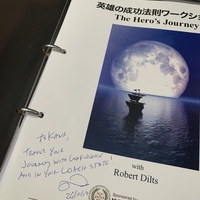 英雄の成功法則ワークショ
The Hero's Journey
with
Robert Dilts
TRAVEL YOUR
JOURNEY WITH CONFIDENCE
AND IN YOUR COACH STATE!
Sponsored by